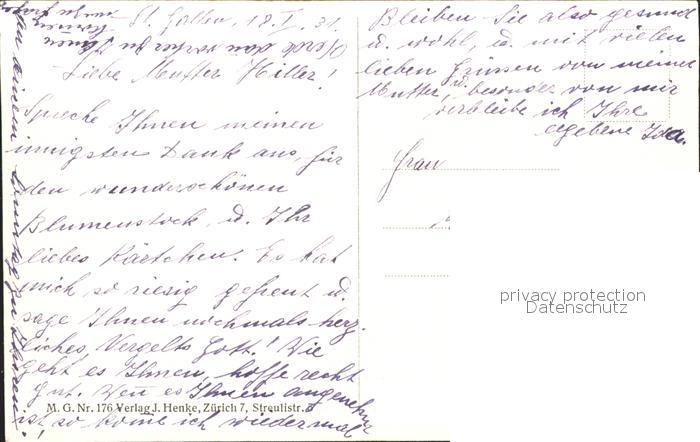 St. Gallen, 18. I. 31.
Liebe Mutter Hiller!
Spreche Ihnen meinen
innigsten Dank aus, für
den wunderschönen
Blumenstock, u. Ihr
liebes Kärtchen. Es hat
mich so riesig gefreut u.
sage Ihnen nochmals herz-
liches, Vergelts Gott! Wie
geht es Ihnen, hoffe recht
gut. Wen̄ es Ihnen angenehm
ist, so kom̄e ich wiedermal
einen Sonntag zu Ihnen!
Werde dan̄ vorher zu Ihnen
kom̄en
Bleiben Sie also gesund
u. wohl, u. mit vielen
lieben Grüssen von meiner
Mutter, u. besonders von mir
verbleibe ich Ihre
ergebene Ida.
Frau
M. G. Nr. 176 Verlag J. Henke, Zürich 7, Streulistr. 3
privacy protection
Datenschutz